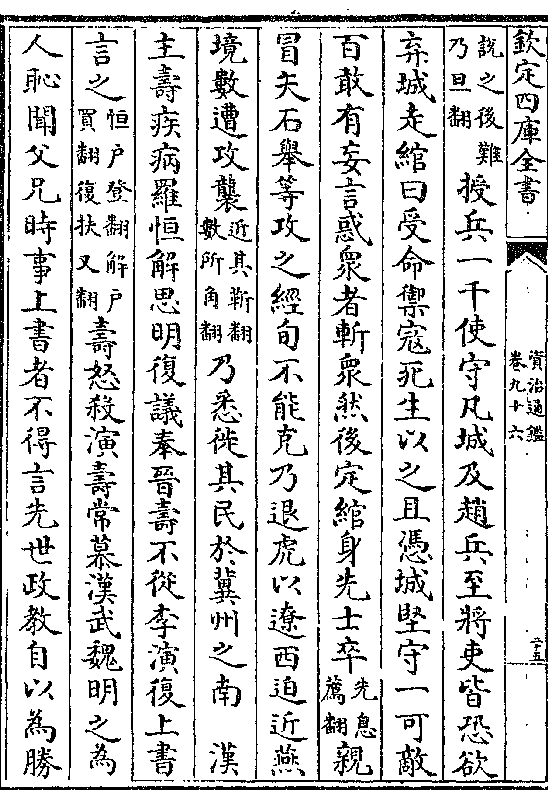 欽定四庫全書
資治通鑑
卷九十六
二十五
說之後難
乃旦翻
授兵一千使守凡城及趙兵至將吏皆恐欲
弃城走綰曰受命禦寇死生以之且憑城堅守一可敵
百敢有妄言惑衆者斬衆然後定綰身先士卒
先息
薦翻
親
冒矢石舉等攻之經旬不能克乃退虎以遼西迫近燕
境數遭攻襲
近其靳翻
數所角翻
乃悉徙其民於冀州之南 漢
主壽疾病羅恒解思明復議奉晉壽不從李演復上書
言之
恒戶登翻解戶
買翻復扶又翻
壽怒殺演壽常慕漢武魏明之為
人恥聞父兄時事上書者不得言先世政教自以為勝